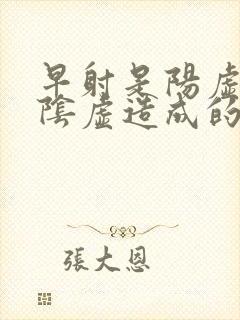 早射是陽虛
陰虛造成的
張大恩